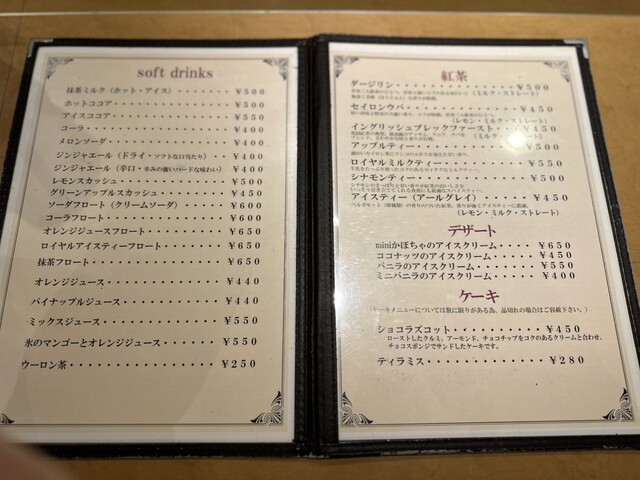 soft drinks
抹茶ミルク（ホット・アイス）・・・・・・・￥500
ホットココア・・・・・・・・・・・・・￥500
アイスココア・・・・・・・・・・・・・￥550
コーラ・・・・・・・・・・・・・・・・￥400
メロンソーダ・・・・・・・・・・・・・￥400
ジンジャエール（ドライ・ソフトな口当たり）・・・￥400
ジンジャエール（辛口・辛みの強いハードな味わい）・・￥400
レモンスカッシュ・・・・・・・・・・・￥500
グリーンアップルスカッシュ・・・・・・￥450
ソーダフロート（クリームソーダ）・・・・￥600
コーラフロート・・・・・・・・・・・・￥600
オレンジジュースフロート・・・・・・・￥650
ロイヤルアイスティーフロート・・・・・￥650
抹茶フロート・・・・・・・・・・・・・￥650
オレンジジュース・・・・・・・・・・・￥440
パイナップルジュース・・・・・・・・・￥440
ミックスジュース・・・・・・・・・・・￥550
氷のマンゴーとオレンジジュース・・・・￥550
ウーロン茶・・・・・・・・・・・・・・￥250
紅茶
ダージリン・・・・・・・・・・・・・・￥500
（ミルク・ストレート）
セイロンウバ・・・・・・・・・・・・・￥450
（レモン・ミルク・ストレート）
イングリッシュブレックファースト・・・￥450
（ミルク・ストレート）
アップルティー・・・・・・・・・・・・￥500
ロイヤルミルクティー・・・・・・・・・￥550
シナモンティー・・・・・・・・・・・・￥500
アイスティー（アールグレイ）・・・・・￥450
（レモン・ミルク・ストレート）
デザート
miniかぼちゃのアイスクリーム・・・・￥650
ココナッツのアイスクリーム・・・・・￥450
バニラのアイスクリーム・・・・・・・￥550
ミニバニラのアイスクリーム・・・・・￥400
ケーキ
（ケーキメニューについては数に限りがある為、品切れの場合はご容赦下さい。）
ショコラズコット・・・・・・・・・・￥450
ローストしたクルミ、アーモンド、チョコチップをコクのあるクリームと合わせ、
チョコスポンジでサンドしたケーキです。
ティラミス・・・・・・・・・・・・・￥280